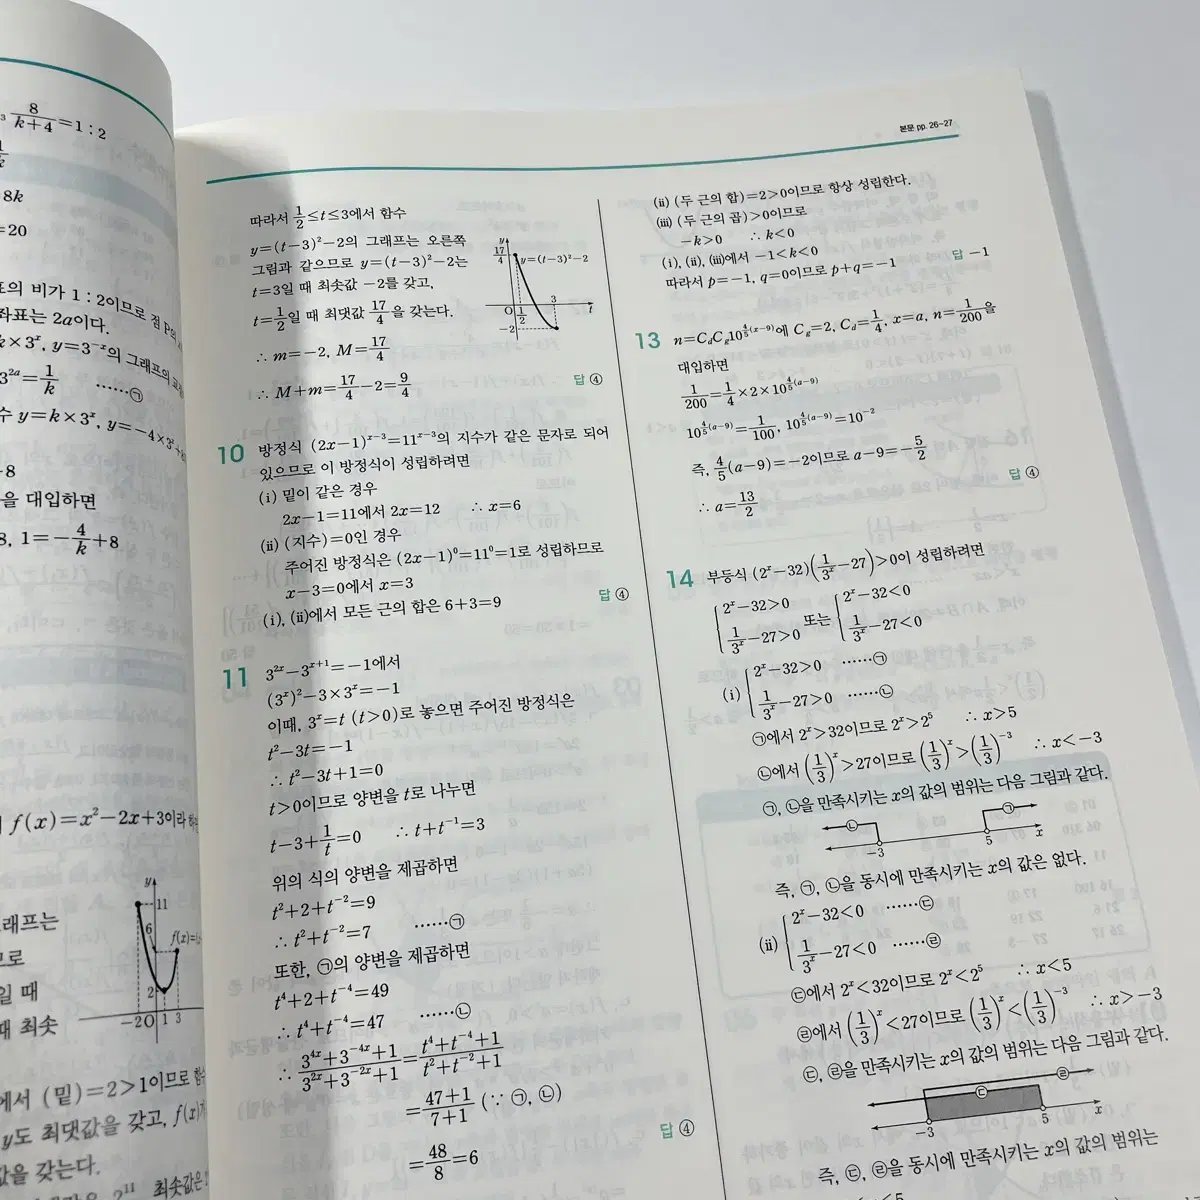 8/(k+4)=1:2
8k
=20
표의 비가 1:2이므로 점 P의
좌표는 2a이다.
k×3ˣ, y=3⁻ˣ의 그래프의
3²ᵃ=1/k ……㉠
수 y=k×3ˣ, y=-4×3ˣ+8
-8
을 대입하면
8, 1=-4/k+8
f(x)=x²-2x+3이라
그래프는
므로
일 때
때 최솟
y
11
6
f(x)=
2
-2 O 1 3
에서 (밑)=2>1이므로
y도 최댓값을 갖고, f(x)
값을 갖는다.
2¹¹ 최솟값은
본문 pp. 26~27
따라서 1/2≤t≤3에서 함수
y=(t-3)²-2의 그래프는 오른쪽
그림과 같으므로 y=(t-3)²-2는
t=3일 때 최솟값 -2를 갖고,
t=1/2일 때 최댓값 17/4을 갖는다.
∴ m=-2, M=17/4
∴ M+m=17/4-2=9/4
답 ④
y
17/4
y=(t-3)²-2
O 1/2 3 t
-2
10 방정식 (2x-1)ˣ⁻³=11ˣ⁻³의 지수가 같은 문자로 되어
있으므로 이 방정식이 성립하려면
(ⅰ) 밑이 같은 경우
2x-1=11에서 2x=12 ∴ x=6
(ⅱ) (지수)=0인 경우
주어진 방정식은 (2x-1)⁰=11⁰=1로 성립하므로
x-3=0에서 x=3
(ⅰ), (ⅱ)에서 모든 근의 합은 6+3=9
답 ④
11 3²ˣ-3ˣ⁺¹=-1에서
(3ˣ)²-3×3ˣ=-1
이때, 3ˣ=t (t>0)로 놓으면 주어진 방정식은
t²-3t=-1
∴ t²-3t+1=0
t>0이므로 양변을 t로 나누면
t-3+1/t=0 ∴ t+t⁻¹=3
위의 식의 양변을 제곱하면
t²+2+t⁻²=9
∴ t²+t⁻²=7 ……㉠
또한, ㉠의 양변을 제곱하면
t⁴+2+t⁻⁴=49
∴ t⁴+t⁻⁴=47 ……㉡
∴ (3⁴ˣ+3⁻⁴ˣ+1)/(3²ˣ+3⁻²ˣ+1)=(t⁴+t⁻⁴+1)/(t²+t⁻²+1)
=(47+1)/(7+1) (∵ ㉠, ㉡)
=48/8=6
답 ④
(ⅱ) (두 근의 합)=2>0이므로 항상 성립한다.
(ⅲ) (두 근의 곱)>0이므로
-k>0 ∴ k<0
(ⅰ), (ⅱ), (ⅲ)에서 -1<k<0
따라서 p=-1, q=0이므로 p+q=-1
답 -1
13 n=C_dC_g10^{4/5(x-9)}에 C_g=2, C_d=1/4, x=a, n=1/200을
대입하면
1/200=1/4×2×10^{4/5(a-9)}
10^{4/5(a-9)}=1/100, 10^{4/5(a-9)}=10⁻²
즉, 4/5(a-9)=-2이므로 a-9=-5/2
∴ a=13/2
답 ④
14 부등식 (2ˣ-32)(1/3ˣ-27)>0이 성립하려면
{2ˣ-32>0, 1/3ˣ-27>0 또는 {2ˣ-32<0, 1/3ˣ-27<0
(ⅰ) {2ˣ-32>0 ……㉠
1/3ˣ-27>0 ……㉡
㉠에서 2ˣ>32이므로 2ˣ>2⁵ ∴ x>5
㉡에서 (1/3)ˣ>27이므로 (1/3)ˣ>(1/3)⁻³ ∴ x<-3
㉠, ㉡을 만족시키는 x의 값의 범위는 다음 그림과 같다.
㉡ ㉠
-3 5 x
즉, ㉠, ㉡을 동시에 만족시키는 x의 값은 없다.
(ⅱ) {2ˣ-32<0 ……㉢
1/3ˣ-27<0 ……㉣
㉢에서 2ˣ<32이므로 2ˣ<2⁵ ∴ x<5
㉣에서 (1/3)ˣ<27이므로 (1/3)ˣ<(1/3)⁻³ ∴ x>-3
㉢, ㉣을 만족시키는 x의 값의 범위는 다음 그림과 같다.
㉢ ㉣
-3 5 x
즉, ㉢, ㉣을 동시에 만족시키는 x의 값의 범위는